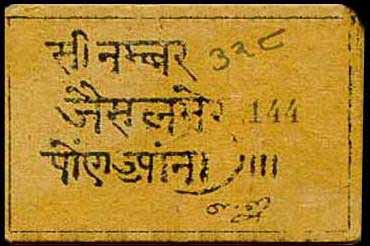 सी नम्बर ३२८
जैसलमेर 144
पोंण उपांन ।)।।।